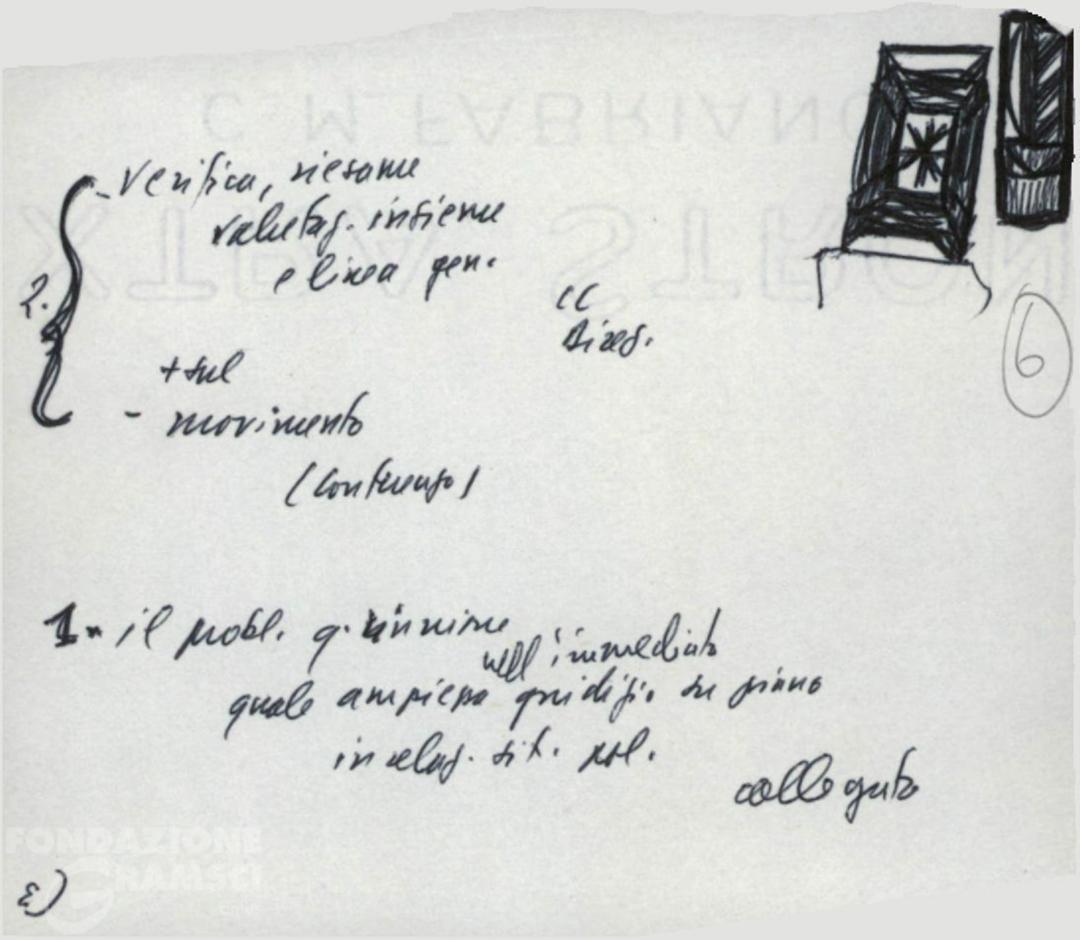 - Verifica, riesame
valutaz. insieme
e linea gen.
2.
CC
Direz.
+ sul
- movimento
(contrenzo)
6
1. il probl. q. riunione
nell'immediato
quale ampiezza giudizio su piano
in relaz. sit. pol.
collegato
3)
C M FABRIANO
XTRA STRON
FONDAZIONE
GRAMSCI